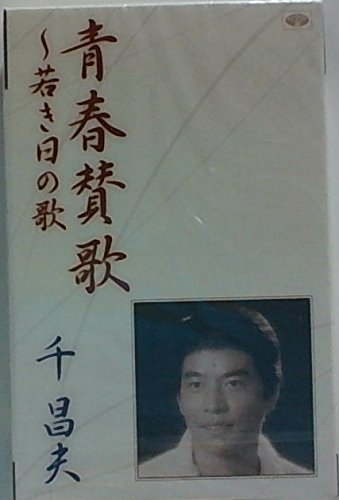 青春賛歌
~若き日の歌
千昌夫